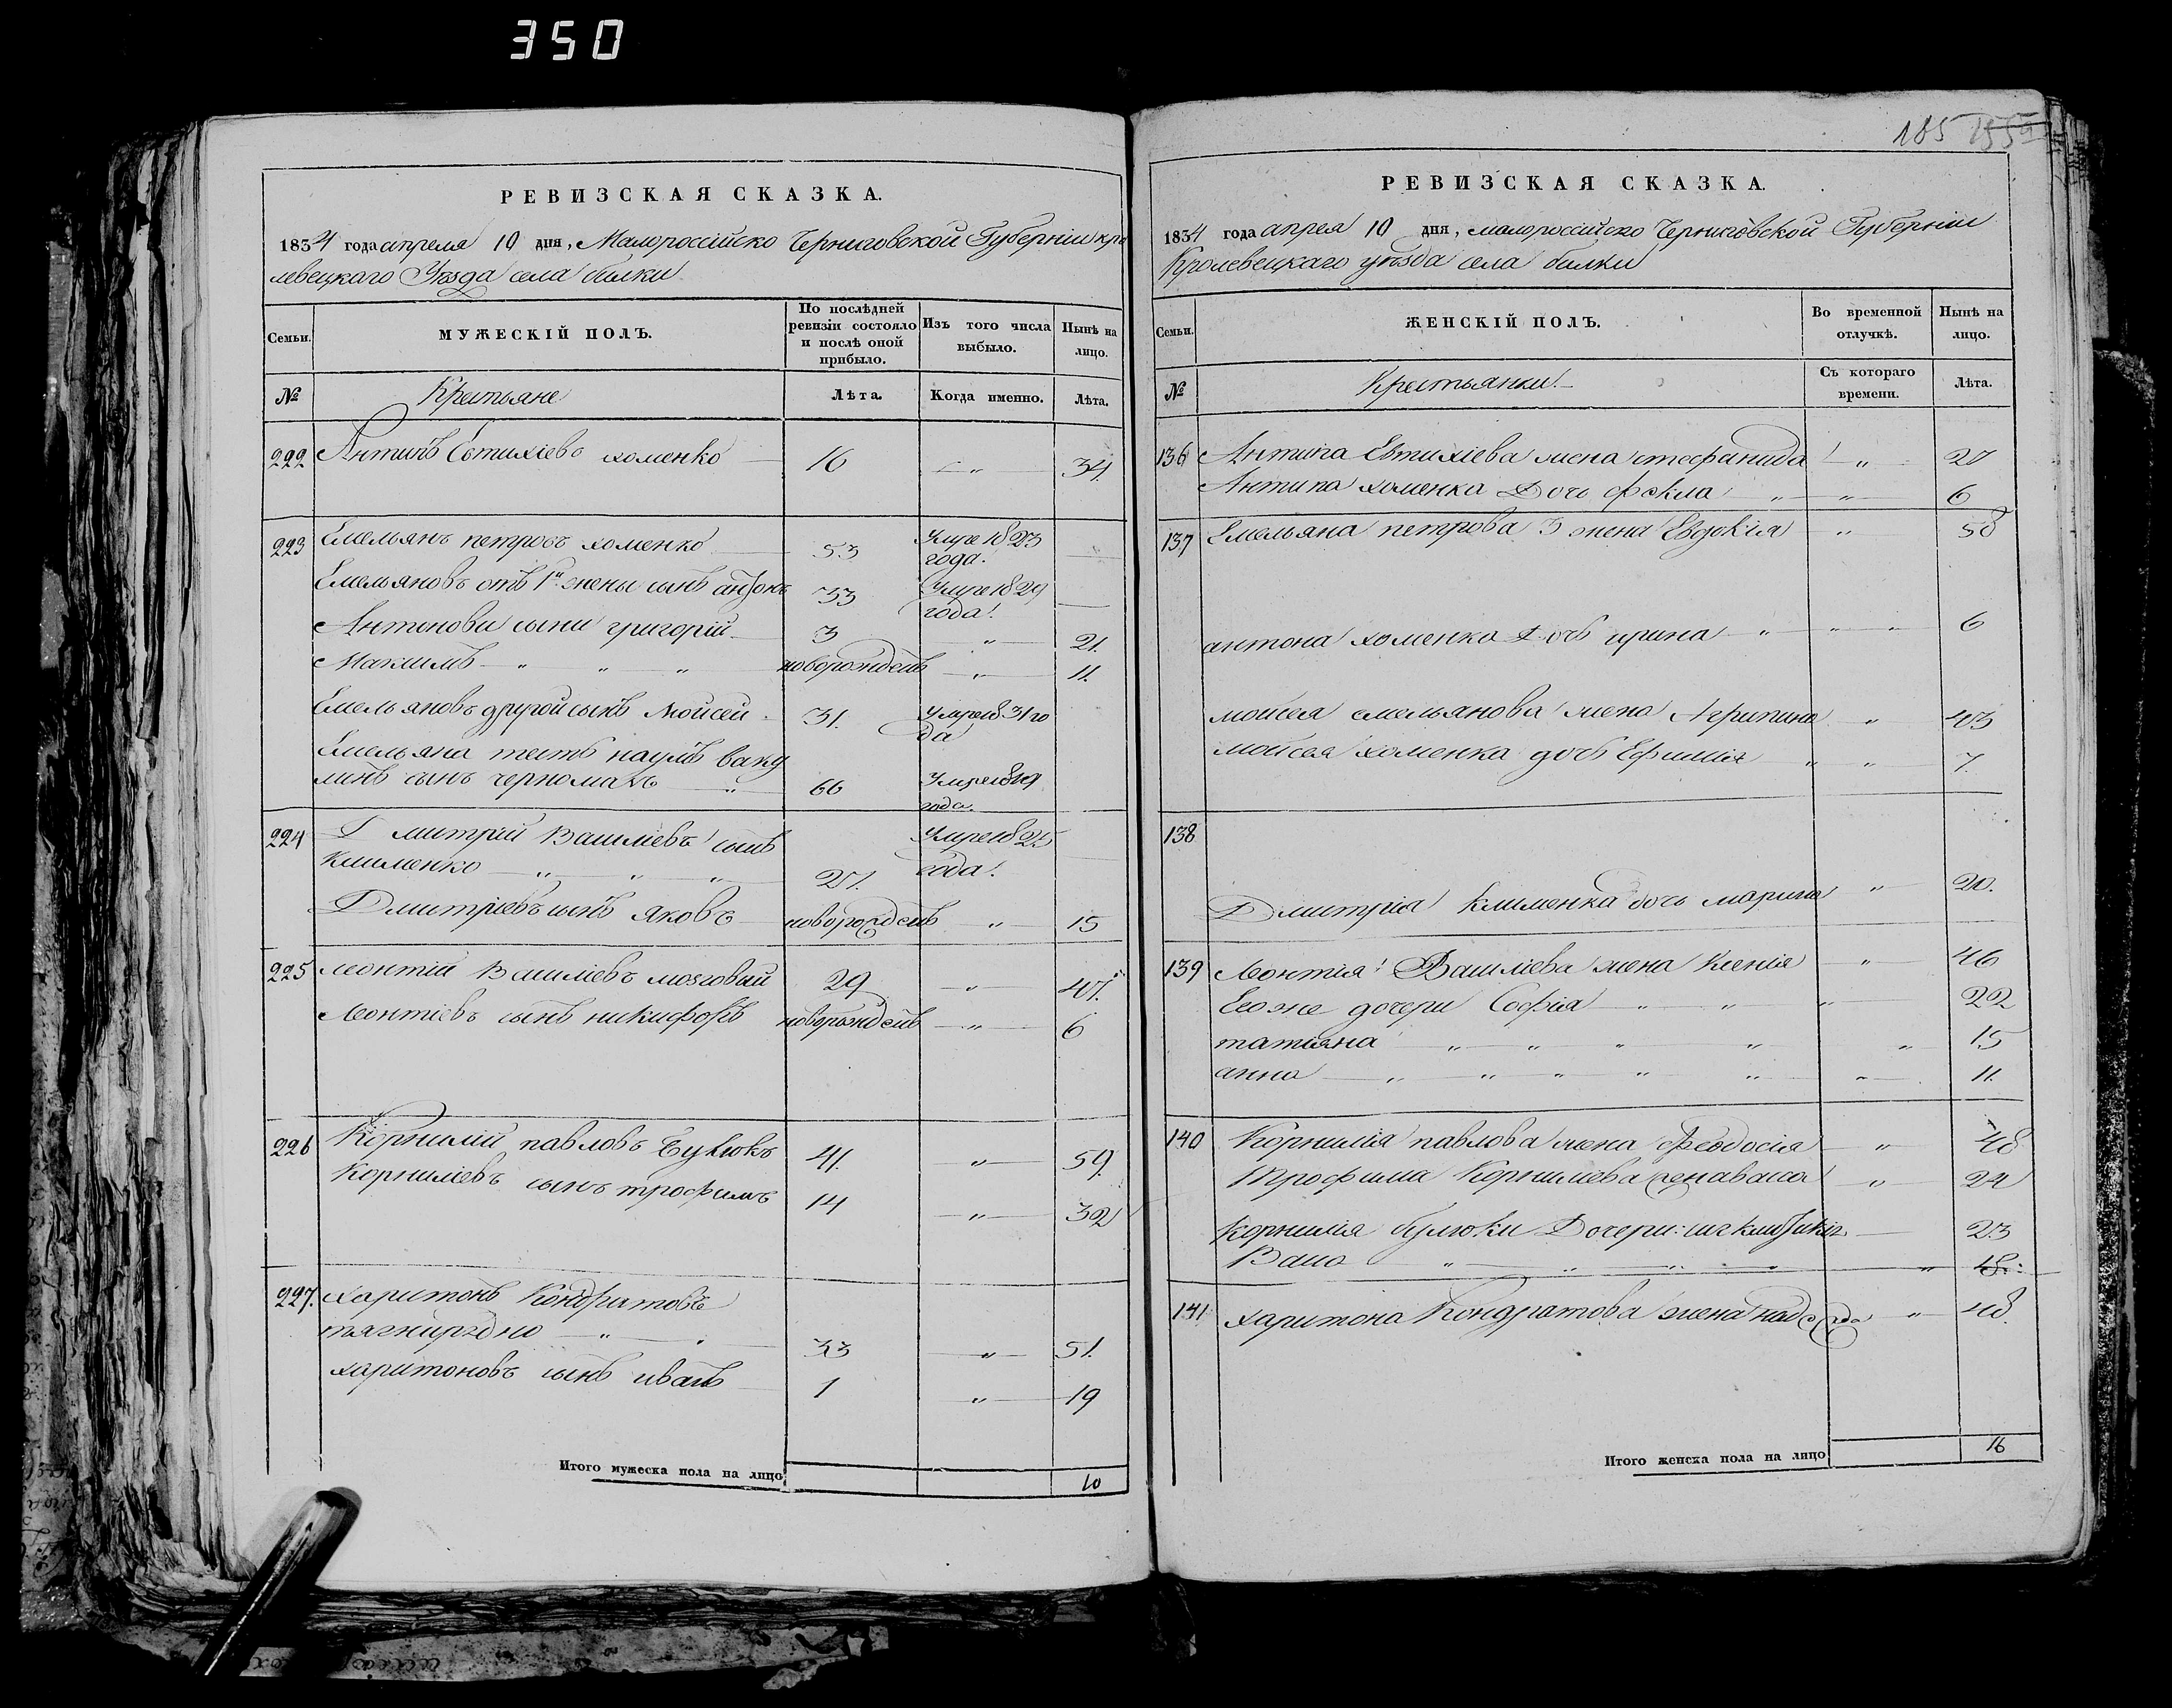 350
185
РЕВИЗСКАЯ СКАЗКА.
1834 года апреля 10 дня, Малороссійско Черниговской Губерніи кро
левецкаго Уѣзда села билки
Семьи. МУЖЕСКІЙ ПОЛЪ. По послѣдней ревизіи состояло и послѣ оной прибыло. Изъ того числа выбыло. Нынѣ на лицо.
№ Крестьяне Лѣта. Когда именно. Лѣта.
222 Антипъ Евтихіевъ хоменко 16 " 34.
223 Емельянъ петровъ хоменко 53 Умре 1823 года.
Емельяновъ отъ 1й жены сынъ антонъ 33 Умре 1829 года.
Антонови сыни григорій 3 " 21.
Максимъ " " " новорожденъ " 11.
Емельяновъ другой сынъ Мойсей 31. Умре 1831 го
да
Емельяна тесть наумъ
сынъ " 66 Умре 1819
года.
224 Дмитрій Василіевъ сынъ Умре 1825
Клименко " " " 27. года.
Дмитріевъ сынъ яковъ новорожденъ " 15
225 леонтій Василіевъ мозговый 29 " 47.
Леонтіевъ сынъ никифоръ новорожденъ " 6
226 Корнилій павловъ 41. " 59
Корниліевъ сынъ трофимъ 14 " 32
227. харитонъ Кондратовъ
тягнирядно " " 33 " 51.
харитоновъ сынъ иванъ 1 " 19
Итого мужеска пола на лицо 10
РЕВИЗСКАЯ СКАЗКА.
1834 года апреля 10 дня, малороссійско Черниговской Губерніи
Кролевецкаго уѣзда села билки
Семьи. ЖЕНСКІЙ ПОЛЪ. Во временной отлучкѣ. Нынѣ на лицо.
№ Крестьянки. Съ котораго времени. Лѣта.
136 Антипа Евтихіева жена стефанида " 27
Антипа хоменка Дочь фекла " " 6
137 Емельяна петрова 3 жена Евдокія " 58
антона хоменка Дочь ирина " " " 6
мойсея емельянова жена Агрипина " 43
мойсея хоменка дочь Ефимія " " 7.
138
Дмитрія клименка дочь марина " 20.
139 Леонтія Василіева жена Ксенія " 46
Его же дочери Софія " " " 22
татіяна " " " " " 15
анна " " " " " " 11.
140 Корнилія павлова жена Феодосія " 48
Трофима Корниліева " 24
Корнилія Дочери: 23
Васа " " " " " 18.
141 харитона Кондратова жена надежда " 48.
Итого женска пола на лицо 16